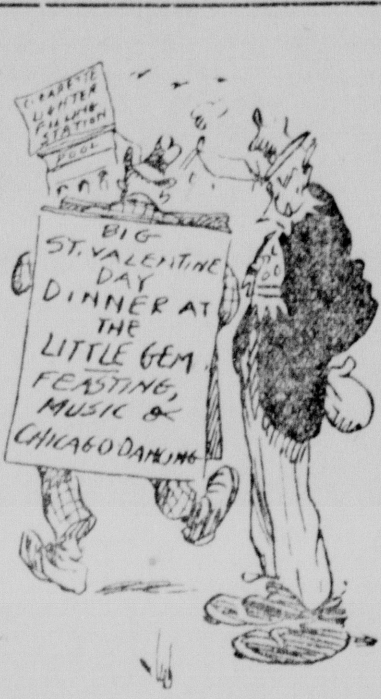 CIGARETTE
LIGHTER
FILLING
STATION
POOL
BIG
ST. VALENTINE
DAY
DINNER AT
THE
LITTLE GEM
FEASTING,
MUSIC &
CHICAGO DANCING